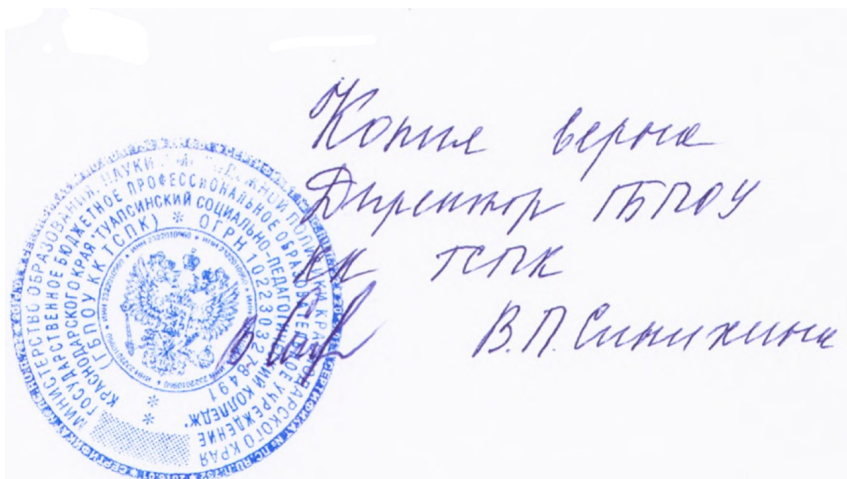 Копия верна
Директор ГБПОУ
КК ТСПК
В.П.Синихина
МИНИСТЕРСТВО ОБРАЗОВАНИЯ, НАУКИ И МОЛОДЕЖНОЙ ПОЛИТИКИ КРАСНОДАРСКОГО КРАЯ
ГОСУДАРСТВЕННОЕ БЮДЖЕТНОЕ ПРОФЕССИОНАЛЬНОЕ ОБРАЗОВАТЕЛЬНОЕ УЧРЕЖДЕНИЕ
КРАСНОДАРСКОГО КРАЯ "ТУАПСИНСКИЙ СОЦИАЛЬНО-ПЕДАГОГИЧЕСКИЙ КОЛЛЕДЖ"
(ГБПОУ КК ТСПК) * ОГРН